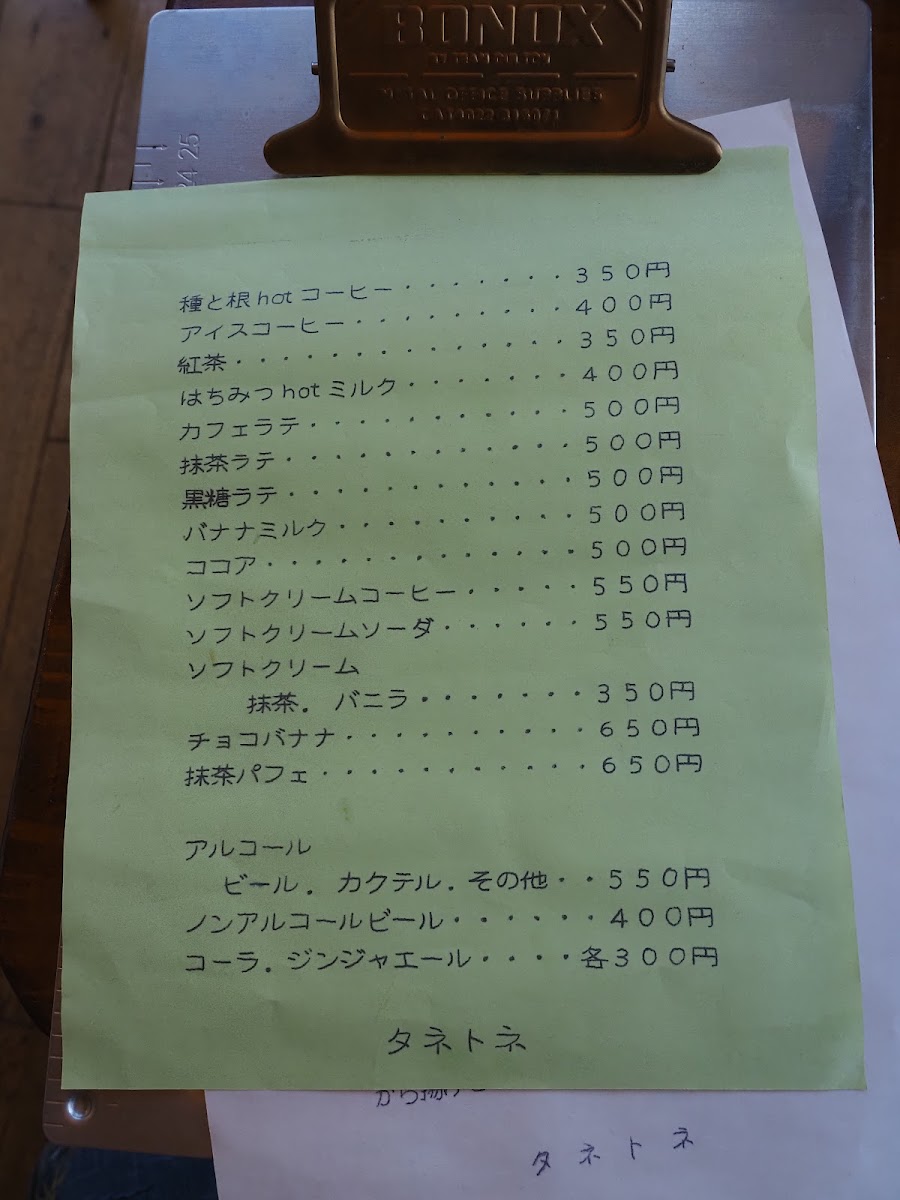 BONOX
METAL OFFICE SUPPLIES
24 25
種と根hotコーヒー・・・・・・・350円
アイスコーヒー・・・・・・・・・・400円
紅茶・・・・・・・・・・・・・・・350円
はちみつhotミルク・・・・・・・400円
カフェラテ・・・・・・・・・・・・500円
抹茶ラテ・・・・・・・・・・・・・500円
黒糖ラテ・・・・・・・・・・・・・500円
バナナミルク・・・・・・・・・・・500円
ココア・・・・・・・・・・・・・・500円
ソフトクリームコーヒー・・・・・550円
ソフトクリームソーダ・・・・・・550円
ソフトクリーム
抹茶. バニラ・・・・・・・350円
チョコバナナ・・・・・・・・・・・650円
抹茶パフェ・・・・・・・・・・・・650円
アルコール
ビール. カクテル. その他・・550円
ノンアルコールビール・・・・・・400円
コーラ. ジンジャエール・・・・各300円
タネトネ
から揚げ
タネトネ